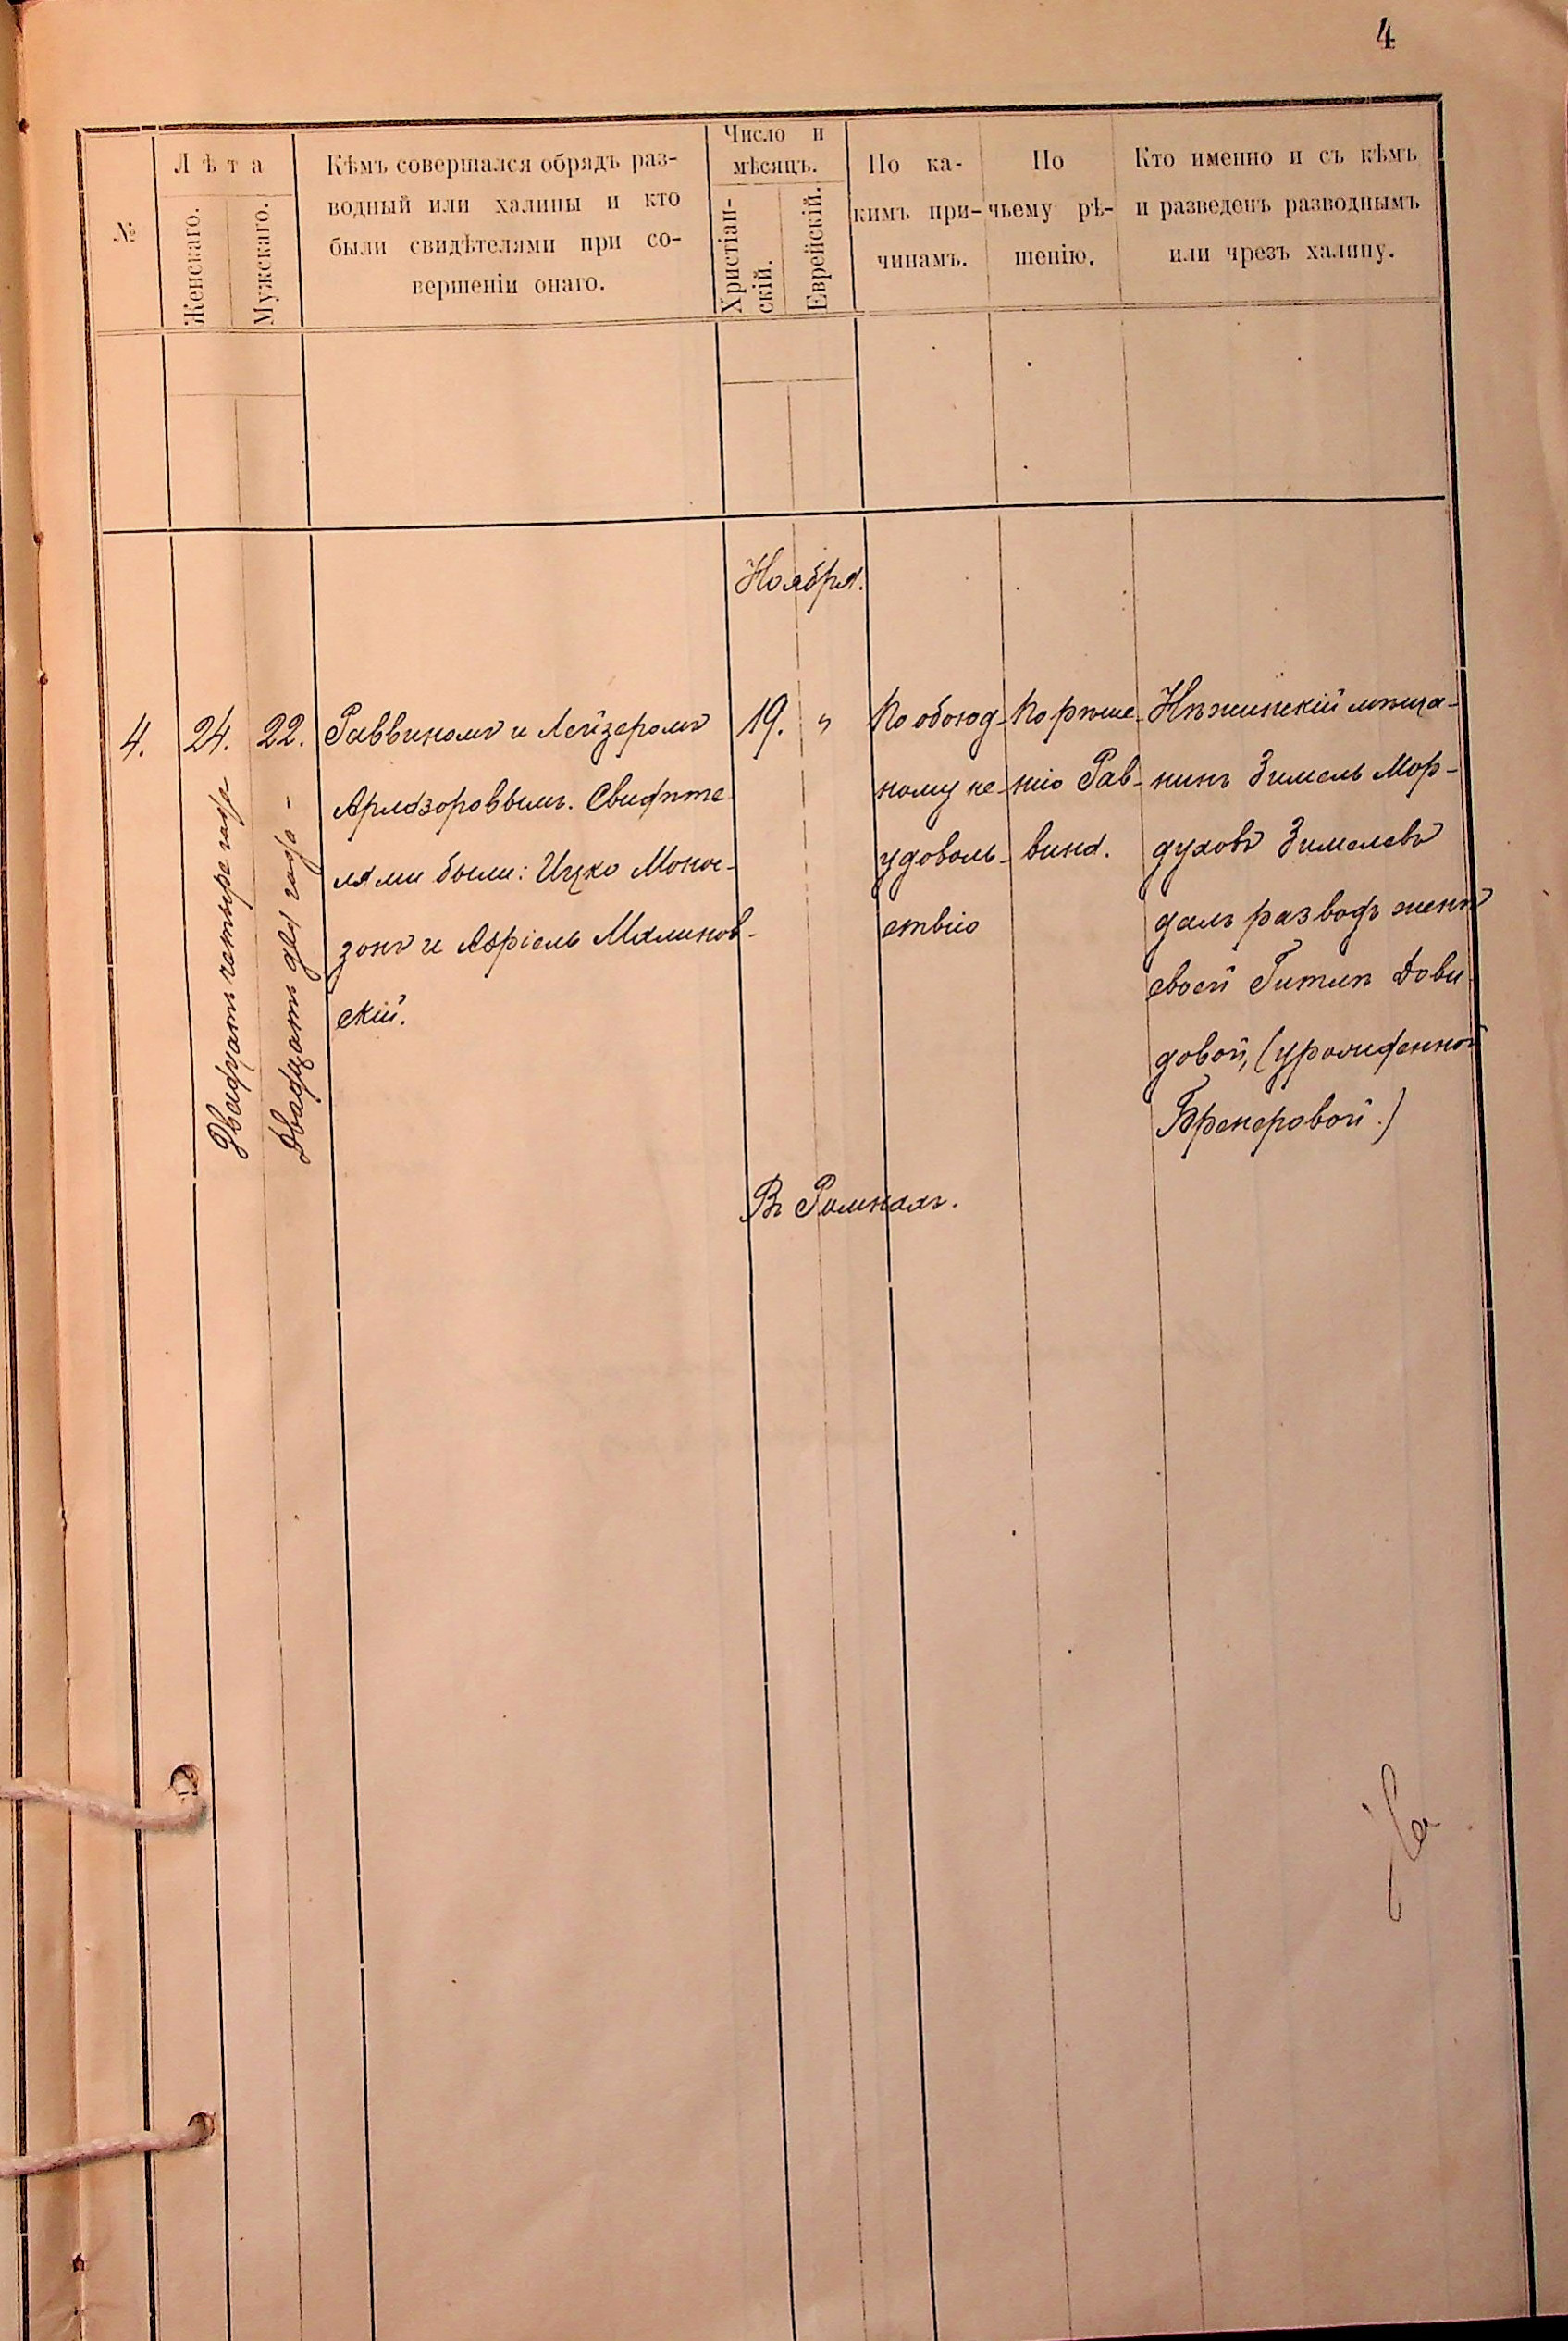 4
№
Лѣта
Женскаго.
Мужскаго.
Кѣмъ совершался обрядъ раз-
водный или халицы и кто
были свидѣтелями при со-
вершеніи онаго.
Число и
мѣсяцъ.
Христіан-
скій.
Еврейскій.
По ка-
кимъ при-
чинамъ.
По
чьему рѣ-
шенію.
Кто именно и съ кѣмъ
и разведенъ разводнымъ
или чрезъ халицу.
Ноября.
4.
24.
Двадцать четыре года
22.
Двадцать два года -
Раввиномъ и Лейзеромъ
Арлозоровымъ. Свидѣте-
лями были: Ицко Монос-
зонъ и Азріель Малинов-
скій.
19.
"
По обоюд-
ному не-
удоволь-
ствію
По рѣше-
нію Рав-
вина.
Нѣжинскій мѣща-
нинъ Зимель Мор-
духовъ Зимелевъ
далъ разводъ женѣ
своей Гитлѣ Дови-
довой, (урожденной
Бренеровой.)
Въ Ромнахъ.